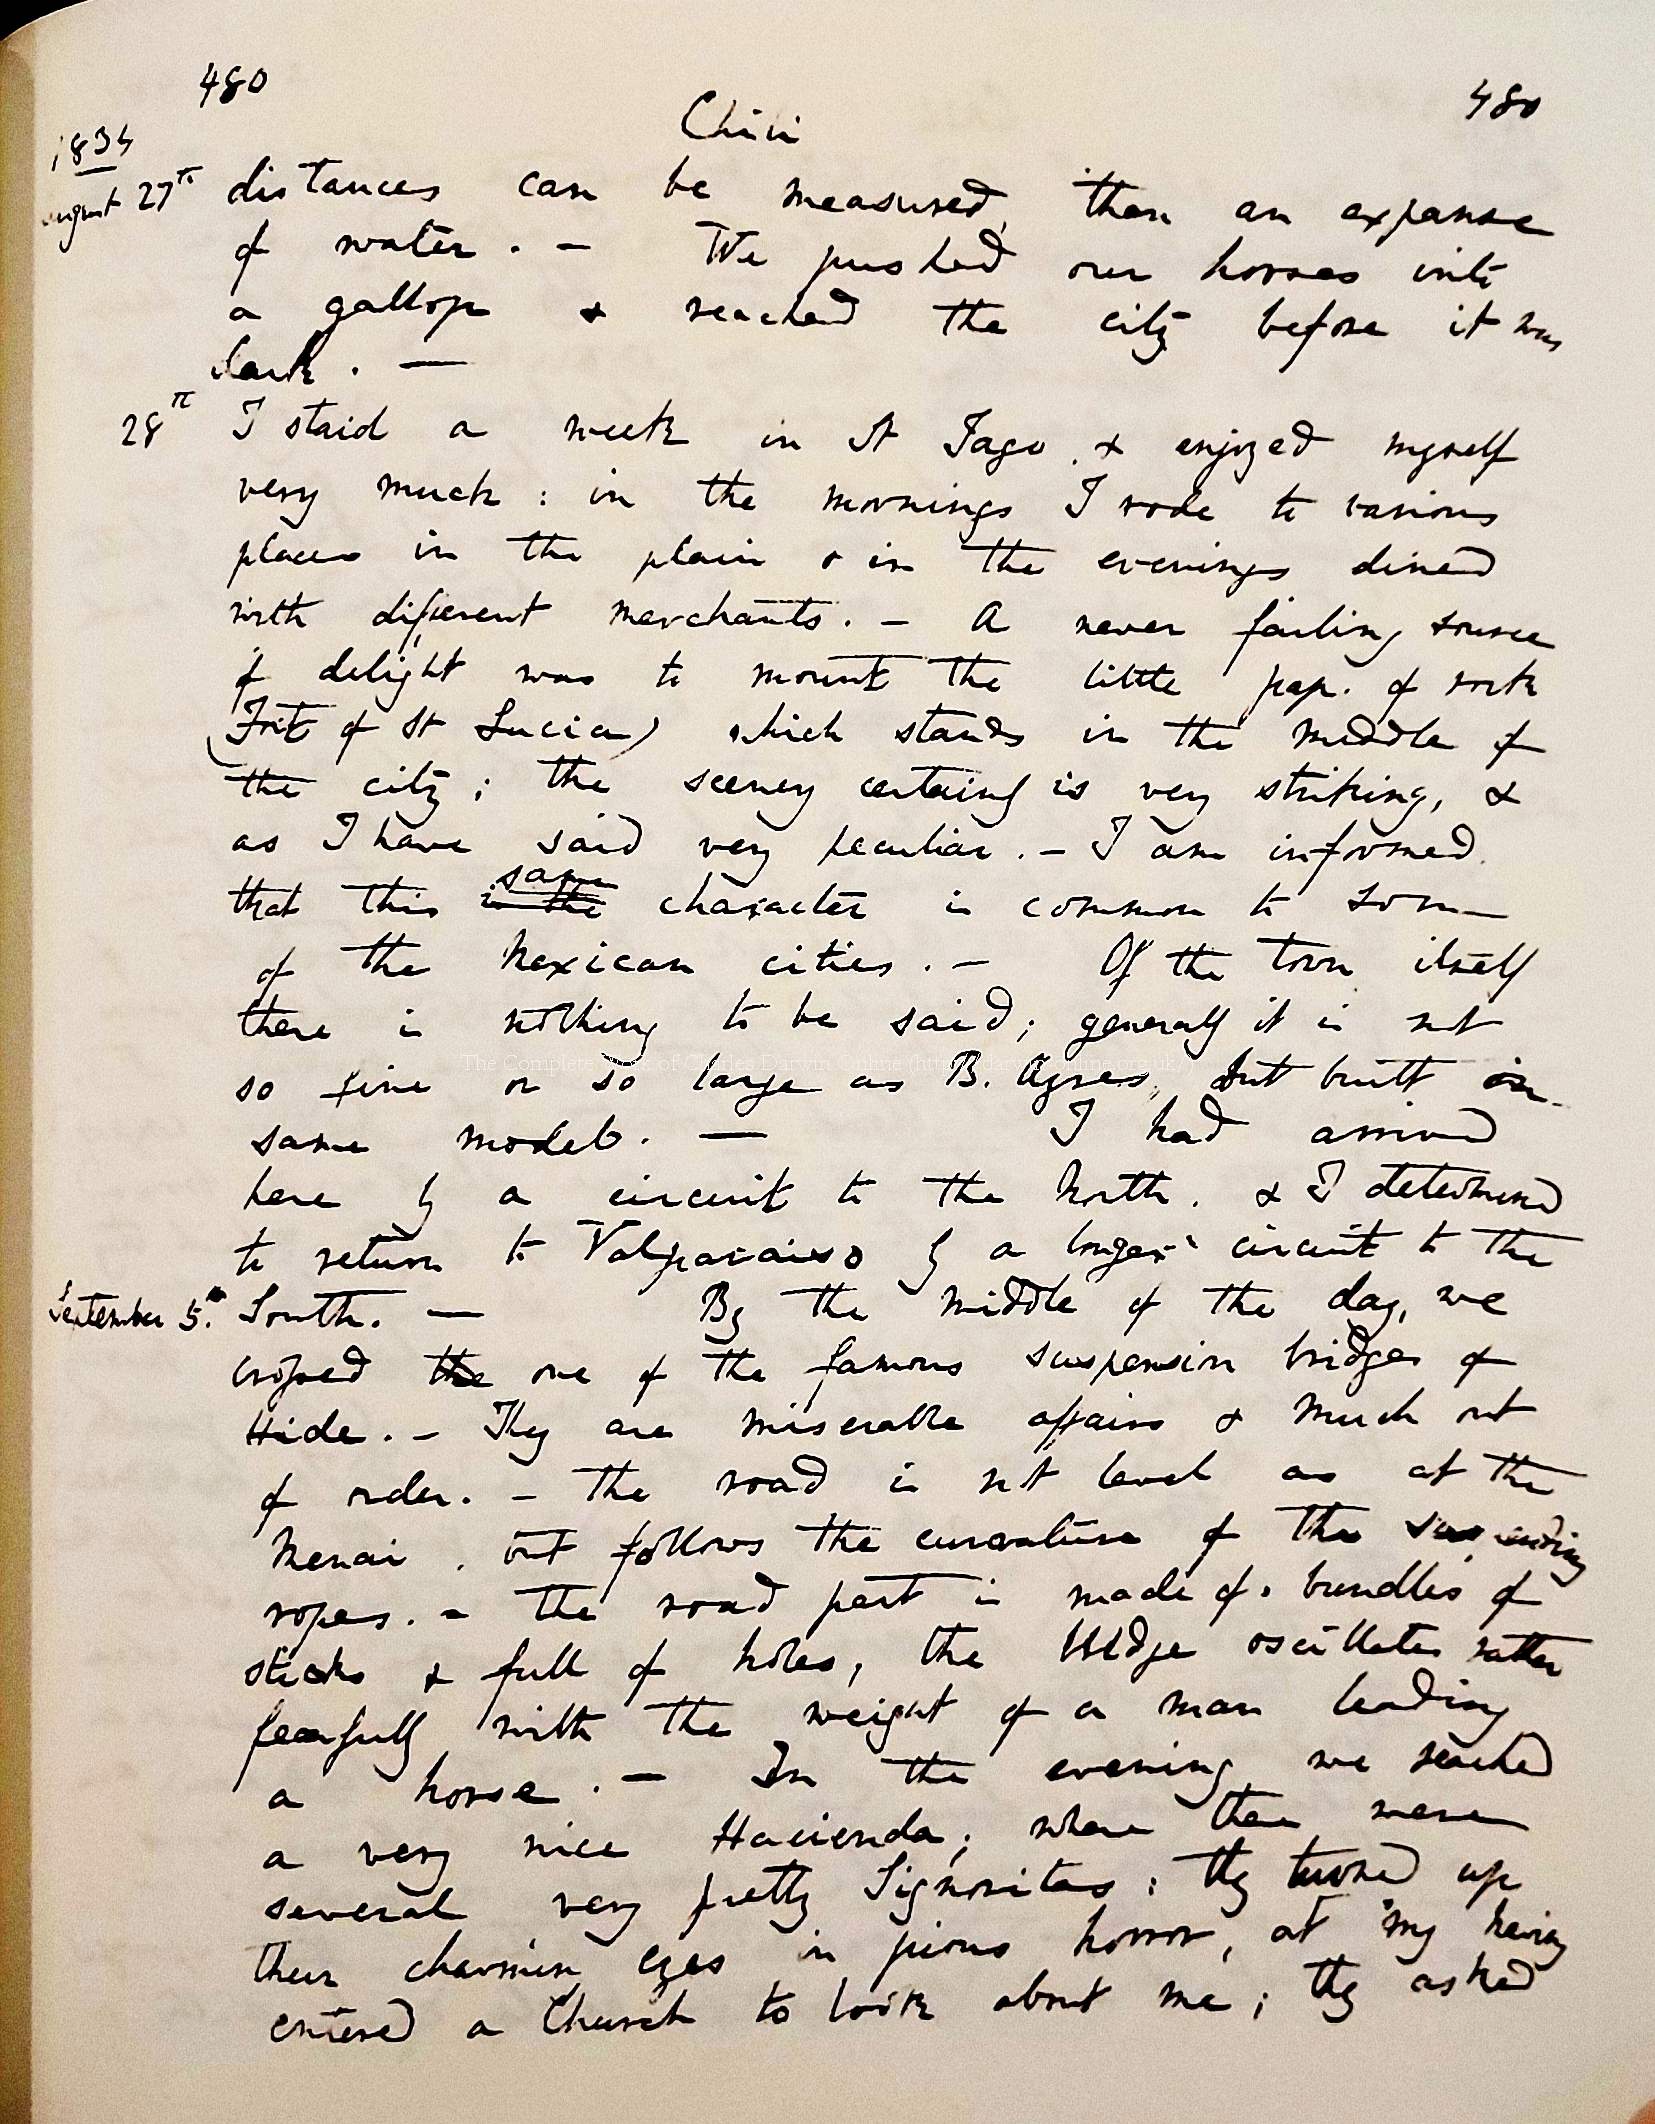 480
Chili
480
1834
August 27th distances can be measured, than an expanse
of water. — We pushed our horses into
a gallop & reached the city before it was
dark. —
28th I staid a week in St Jago. & enjoyed myself
very much: in the mornings I rode to various
places in the plain & in the evenings dined
with different merchants. — A never failing source
of delight was to mount the little pap. of rock
(Fort of St Lucia) which stands in the middle of
the city; the scenery certainly is very striking, &
as I have said very peculiar. — I am informed
same
that this is the character is common to some
of the Mexican cities. — Of the town itself
there is nothing to be said; generally it is not
so fine or so large as B. Ayres, but built on
same model. — I had arrived
here by a circuit to the North. & I determined
to return to Valparaiso by a longer circuit to the
September 5. South. — By the middle of the day, we
crossed the one of the famous suspension bridges of
Hide. — They are miserable affairs & much out
of order. — The road is not level as at the
Menai, but follows the curvature of the suspending
ropes. — The road part is made of bundles of
sticks & full of holes, the bridge oscillates rather
fearfully with the weight of a man leading
a horse. — In the evening we reached
a very nice Hacienda; where there were
several very pretty Signoritas: they turned up
their charming eyes in pious horror, at my having
entered a Church to look about me; they asked
The Complete Work of Charles Darwin Online